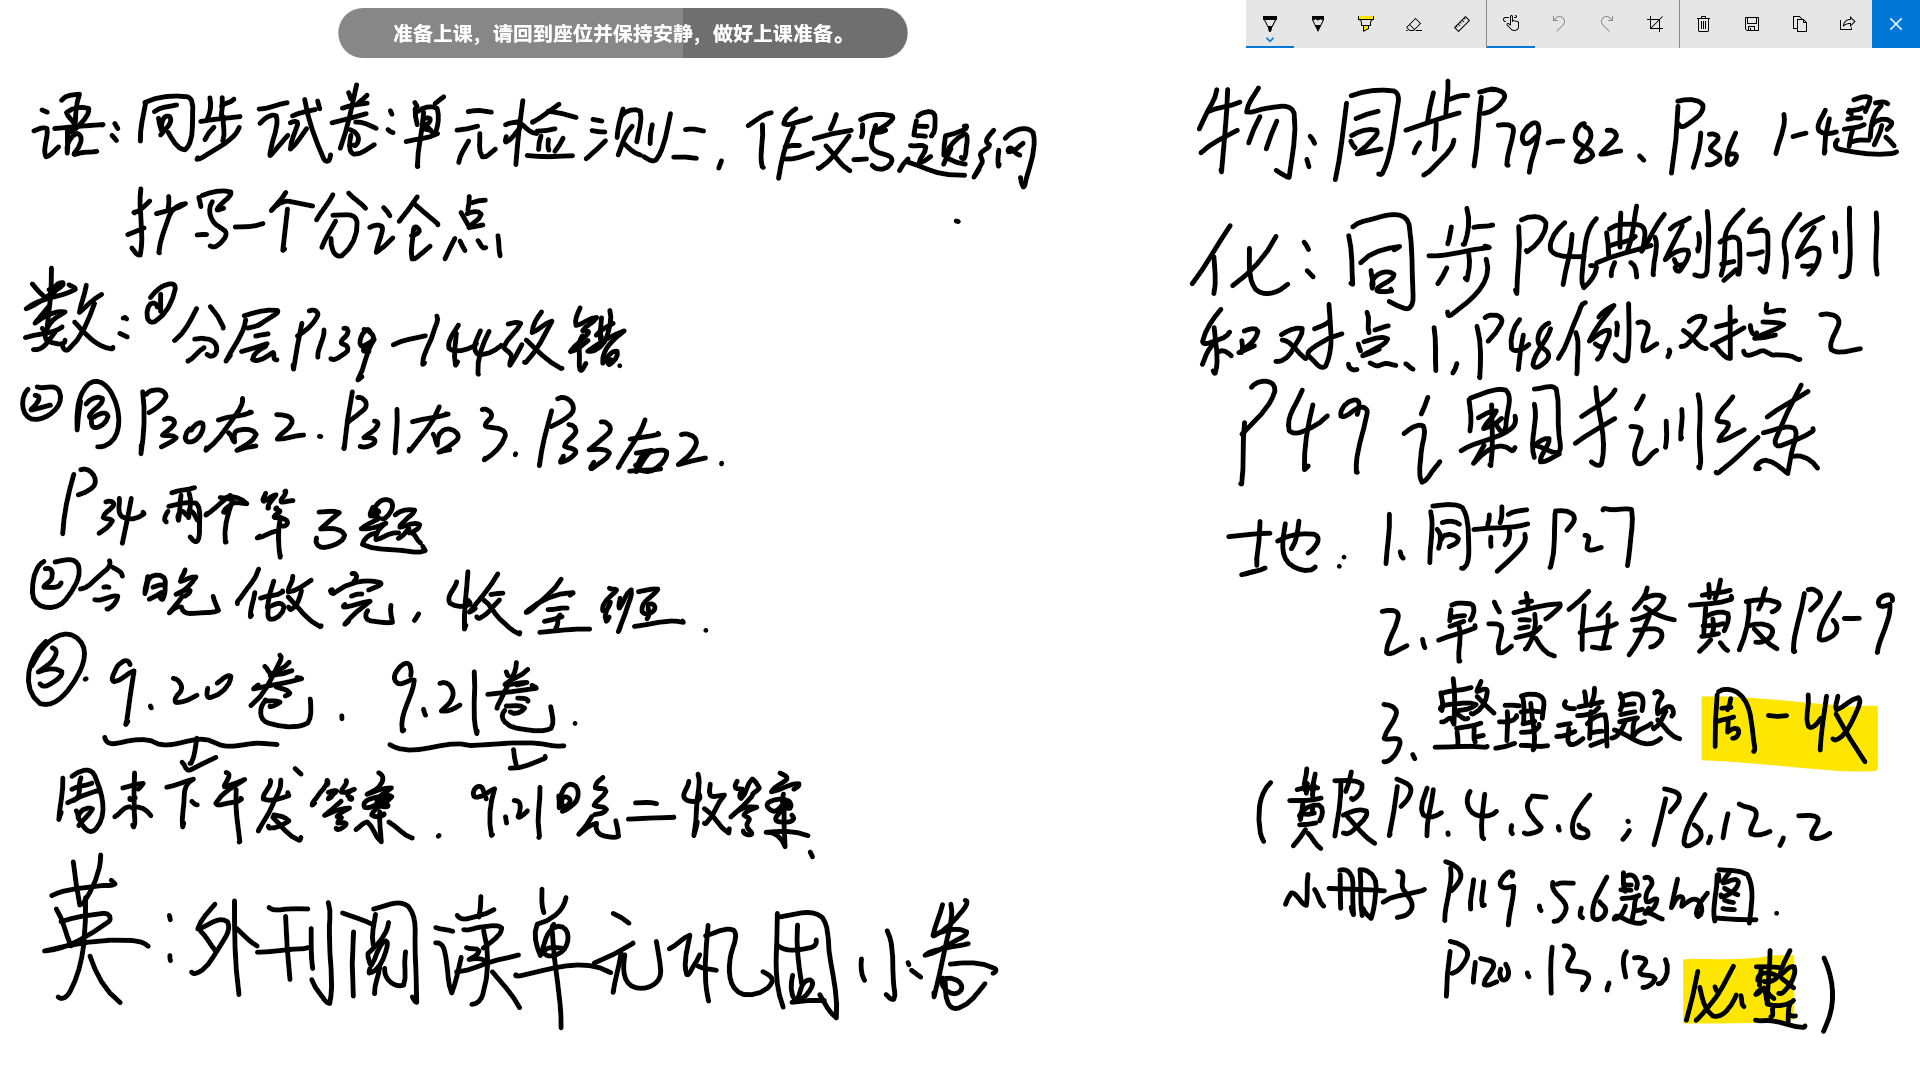 准备上课，请回到座位并保持安静，做好上课准备。
语：同步试卷：单元检测二，作文写题纲
抄写一个分论点
数：①分层P139-144改错.
②同P30右2. P31右3. P33右2.
P34两个第3题
②今晚做完，收全班.
③. 9.20卷. 9.21卷.
周末下午发答案. 9.21日晚二收答案.
英：外刊阅读单元巩固小卷
物：同步P79-82、P136 1-4题
化：同步P46典例的例1
和对点、1, P48例2,对点2
P49 课目标训练
地：1、同步P27
2、早读任务黄皮P6-9
3、整理错题 周一收
(黄皮P4. 4.5.6；P6,12,2
小册子P119.5,6题图.
P120.13,(3) 必整)